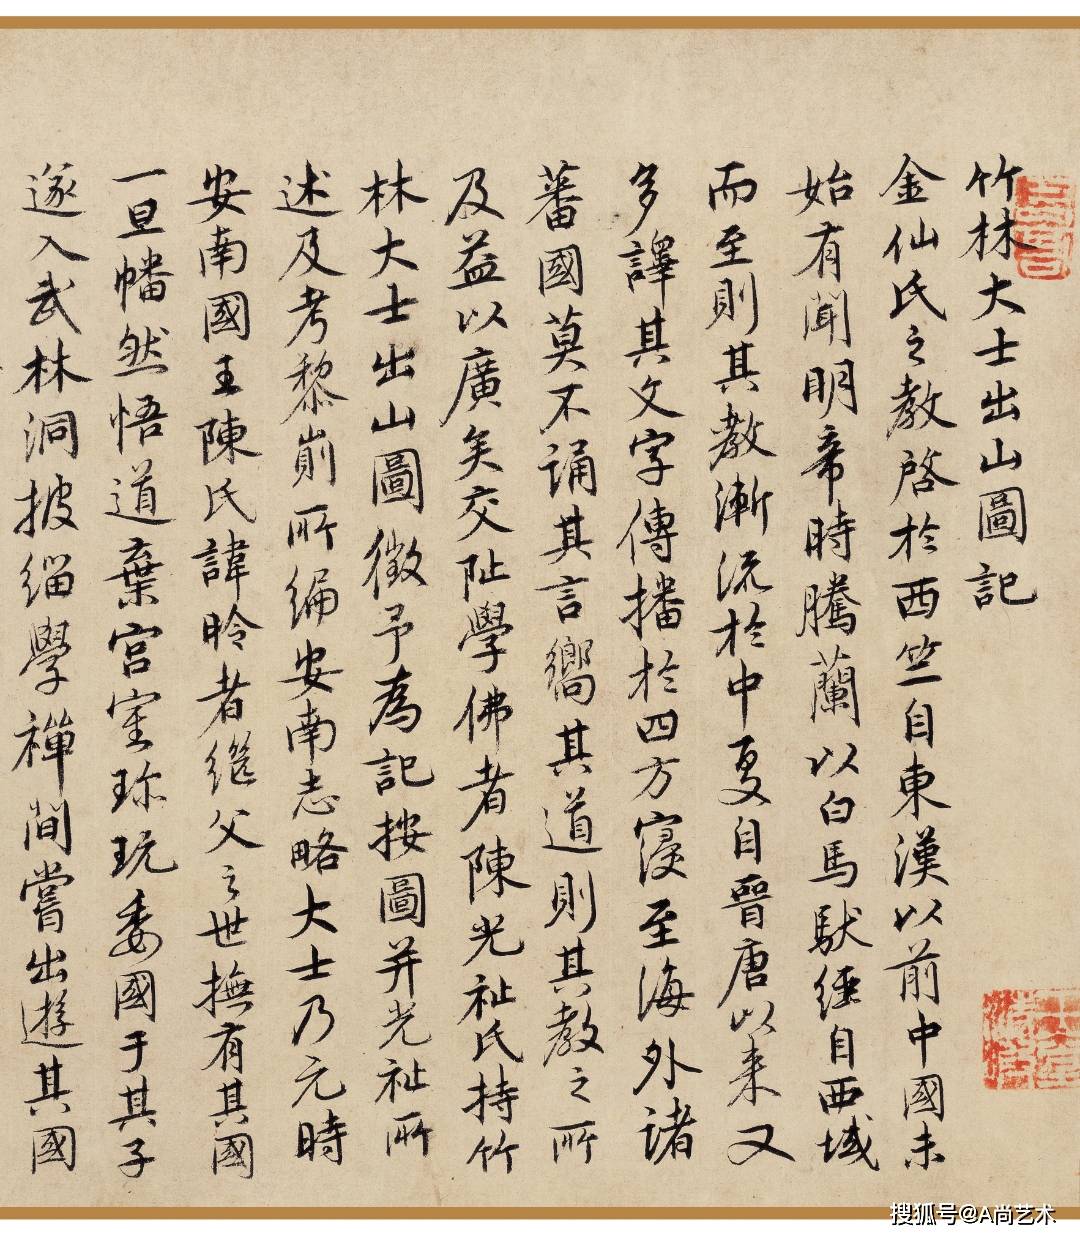 竹林大士出山圖記
金仙氏之教啓於西竺自東漢以前中國未
始有聞明帝時騰蘭以白馬馱經自西域
而至則其教漸流於中夏自晉唐以來又
多譯其文字傳播於四方寖至海外諸
蕃國莫不誦其言嚮其道則其教之所
及益以廣矣交阯學佛者陳光祉氏持竹
林大士出山圖徵予為記按圖并光祉所
述及考黎崱所編安南志略大士乃元時
安南國王陳氏諱昑者繼父之世撫有其國
一旦幡然悟道棄宮室珎玩委國于其子
遂入武林洞披緇學禪間嘗出遊其國
搜狐号@A尚艺术